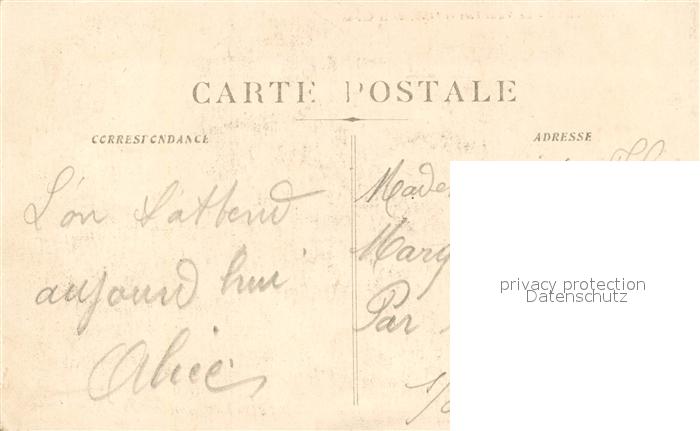 CARTE POSTALE
CORRESPONDANCE
ADRESSE
L'on t'attend
aujourd hui
Alice
Made
Marg
Par
privacy protection
Datenschutz